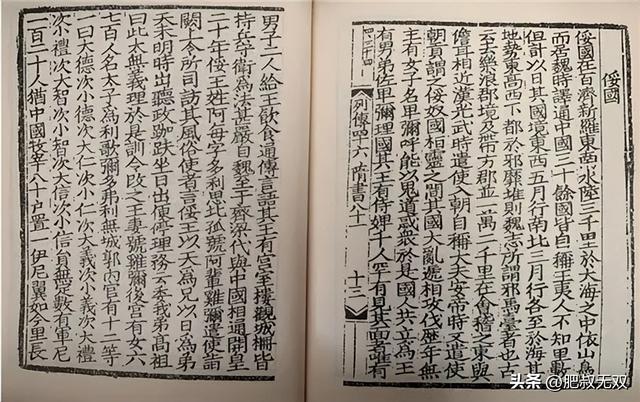 俀國
俀國在百濟新羅東南水陸三千里於大海之中依山島
而居魏時譯通中國三十餘國皆自稱王夷人不知里數
但計以日其國境東西五月行南北三月行各至於海其
地勢東高西下都於邪靡堆則魏志所謂邪馬臺者也古
云去樂浪郡境及帶方郡並一萬二千里在會稽之東與
儋耳相近漢光武時遣使入朝自稱大夫安帝時又遣使
朝貢謂之俀奴國桓靈之間其國大亂遞相攻伐歷年無
主有女子名卑彌呼能以鬼道惑衆於是國人共立為王
有男弟佐卑彌理國其王有侍婢千人罕有見其面者唯有
列傳四十六 隋書八十一 十三
男子二人給王飲食通傳言語其王有宮室樓觀城柵皆
持兵守衛為法甚嚴自魏至于齊梁代與中國相通開皇
二十年俀王姓阿每字多利思比孤號阿輩雞彌遣使詣
闕上令所司訪其風俗使者言俀王以天為兄以日為弟
天未明時出聽政跏趺坐日出便停理務云委我弟高祖
曰此太無義理於是訓令改之王妻號雞彌後宮有女六
七百人名太子為利歌彌多弗利無城郭內官有十二等
一曰大德次小德次大仁次小仁次大義次小義次大禮
次小禮次大智次小智次大信次小信員無定數有軍尼
一百二十人猶中國牧宰八十戶置一伊尼翼如今里長
头条 @肥叔无双